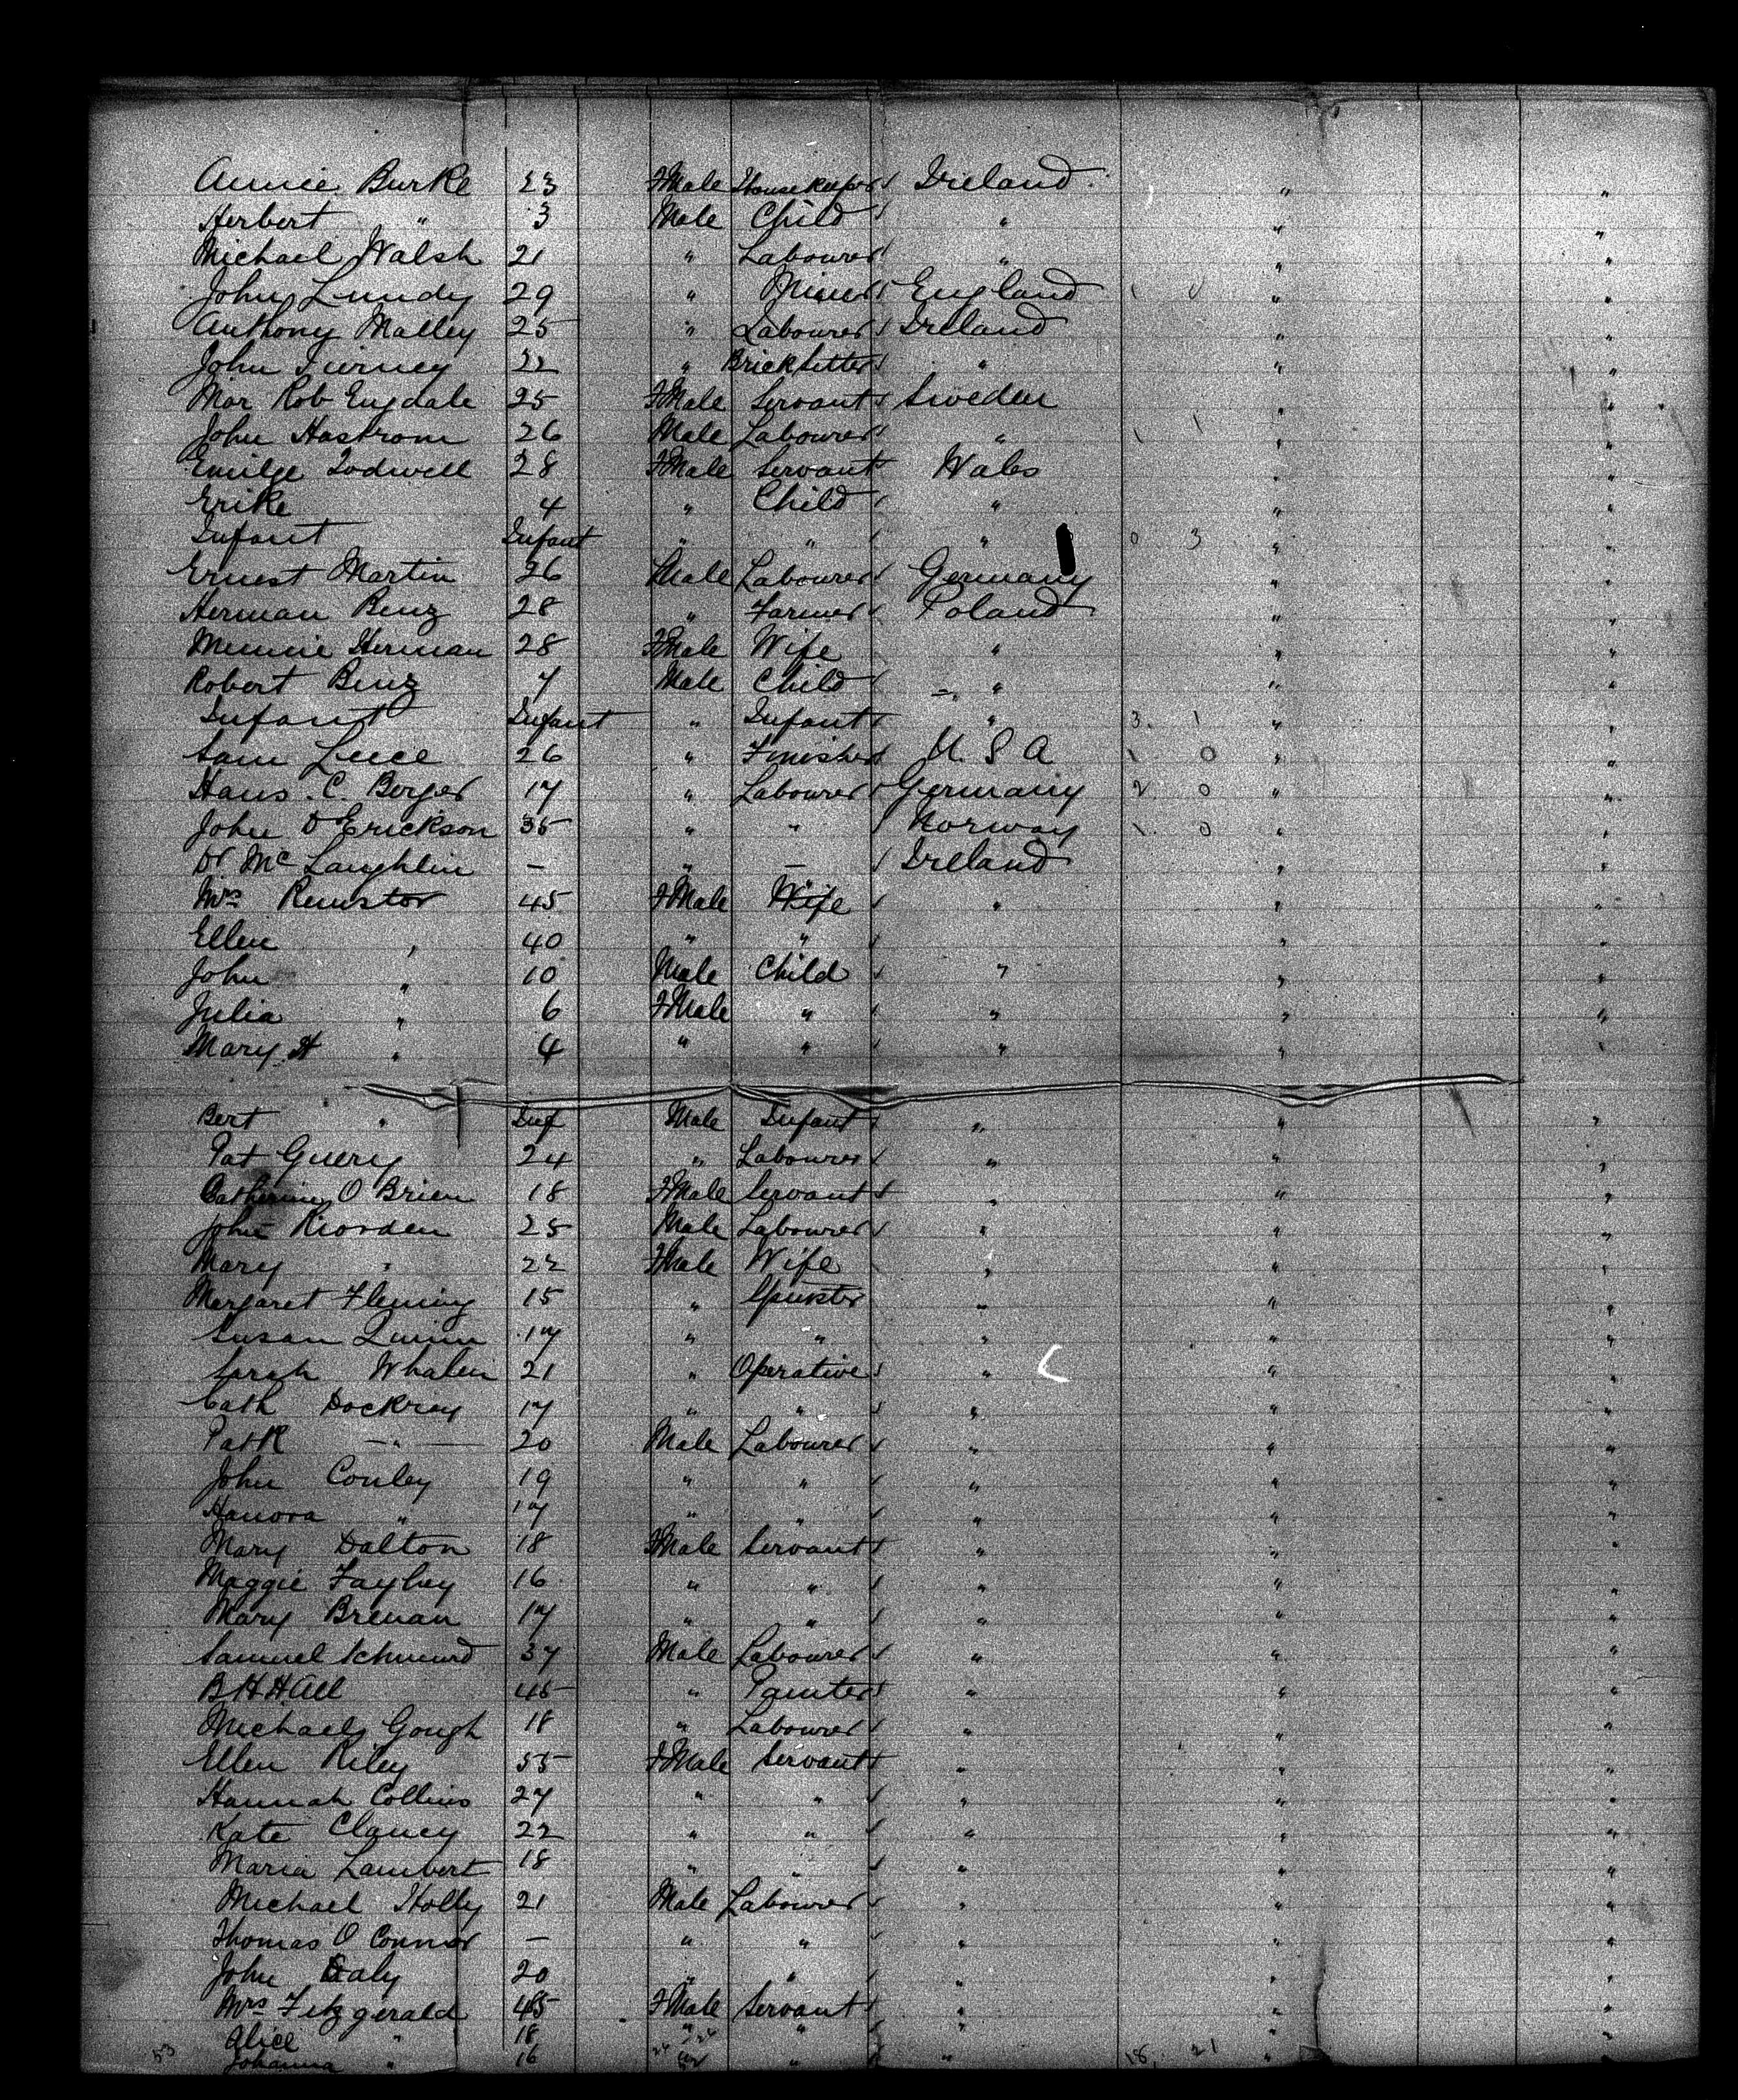 Annie Burke 23 FMale Housekeeper Ireland "  "
Herbert " 3 Male Child " " "
Michael Walsh 21 " Labourer " " "
John Lundy 29 " Miner England 1 0 " "
Anthony Malley 25 " Labourer Ireland " "
John Tierney 22 " Bricksetter " " "
Mar Rob Engdale 25 FMale Servant Sweden " "
John Hastrom 26 Male Labourer " 1 1 " "
Emilge Todwell 28 FMale Servant Wales " "
Erike 4 " Child " " "
Infant Infant " " " 0 3 " "
Ernest Martin 26 Male Labourer Germany " "
Herman Benz 28 " Farmer Poland " "
Minnie Herman 28 FMale Wife " " "
Robert Benz 7 Male Child " " "
Infant Infant " Infant " 3 1 " "
Sam Luce 26 " Finisher U. S A 1 0 " "
Hans. C. Berger 17 " Labourer Germany 2 0 " "
John D Erickson 35 " " Norway 1 0 " "
Dr McLaughlin — " — Ireland " "
Mrs 45 FMale Wife " " "
Ellen " 40 " " " "
John " 10 Male Child " " "
Julia " 6 FMale " " " "
Mary H " 4 " " " " "
Bert " Inf Male Infant " " "
Pat Guery 24 " Labourer " " "
Catherine O Brien 18 FMale Servant " " "
John Riorden 25 Male Labourer " " "
Mary " 22 FMale Wife " " "
Margaret Fleming 15 " Spinster " " "
Susan Quinn 17 " " " " "
Sarah Whalen 21 " Operative " " "
Cath Dockrey 17 " " " " "
Patk — " — 20 Male Labourer " " "
John Conley 19 " " " " "
Hanora " 17 " " " " "
Mary Dalton 18 FMale Servant " " "
Maggie Fayhey 16 " " " " "
Mary Brenan 17 " " " " "
Samuel 37 Male Labourer " " "
B H Hall 45 " Painter " " "
Michael Gough 18 " Labourer " " "
Ellen Riley 55 FMale Servant " " "
Hannah Collins 27 " " " " "
Kate Clancy 22 " " " " "
Maria Lambert 18 " " " " "
Michael Holly 21 Male Labourer " " "
Thomas O Connor — " " " " "
John Daly 20 " " " " "
Mrs Fitzgerald 45 FMale Servant " " "
Alice " 18 " " " " "
53 Johanna " 16 " " 18 21 "